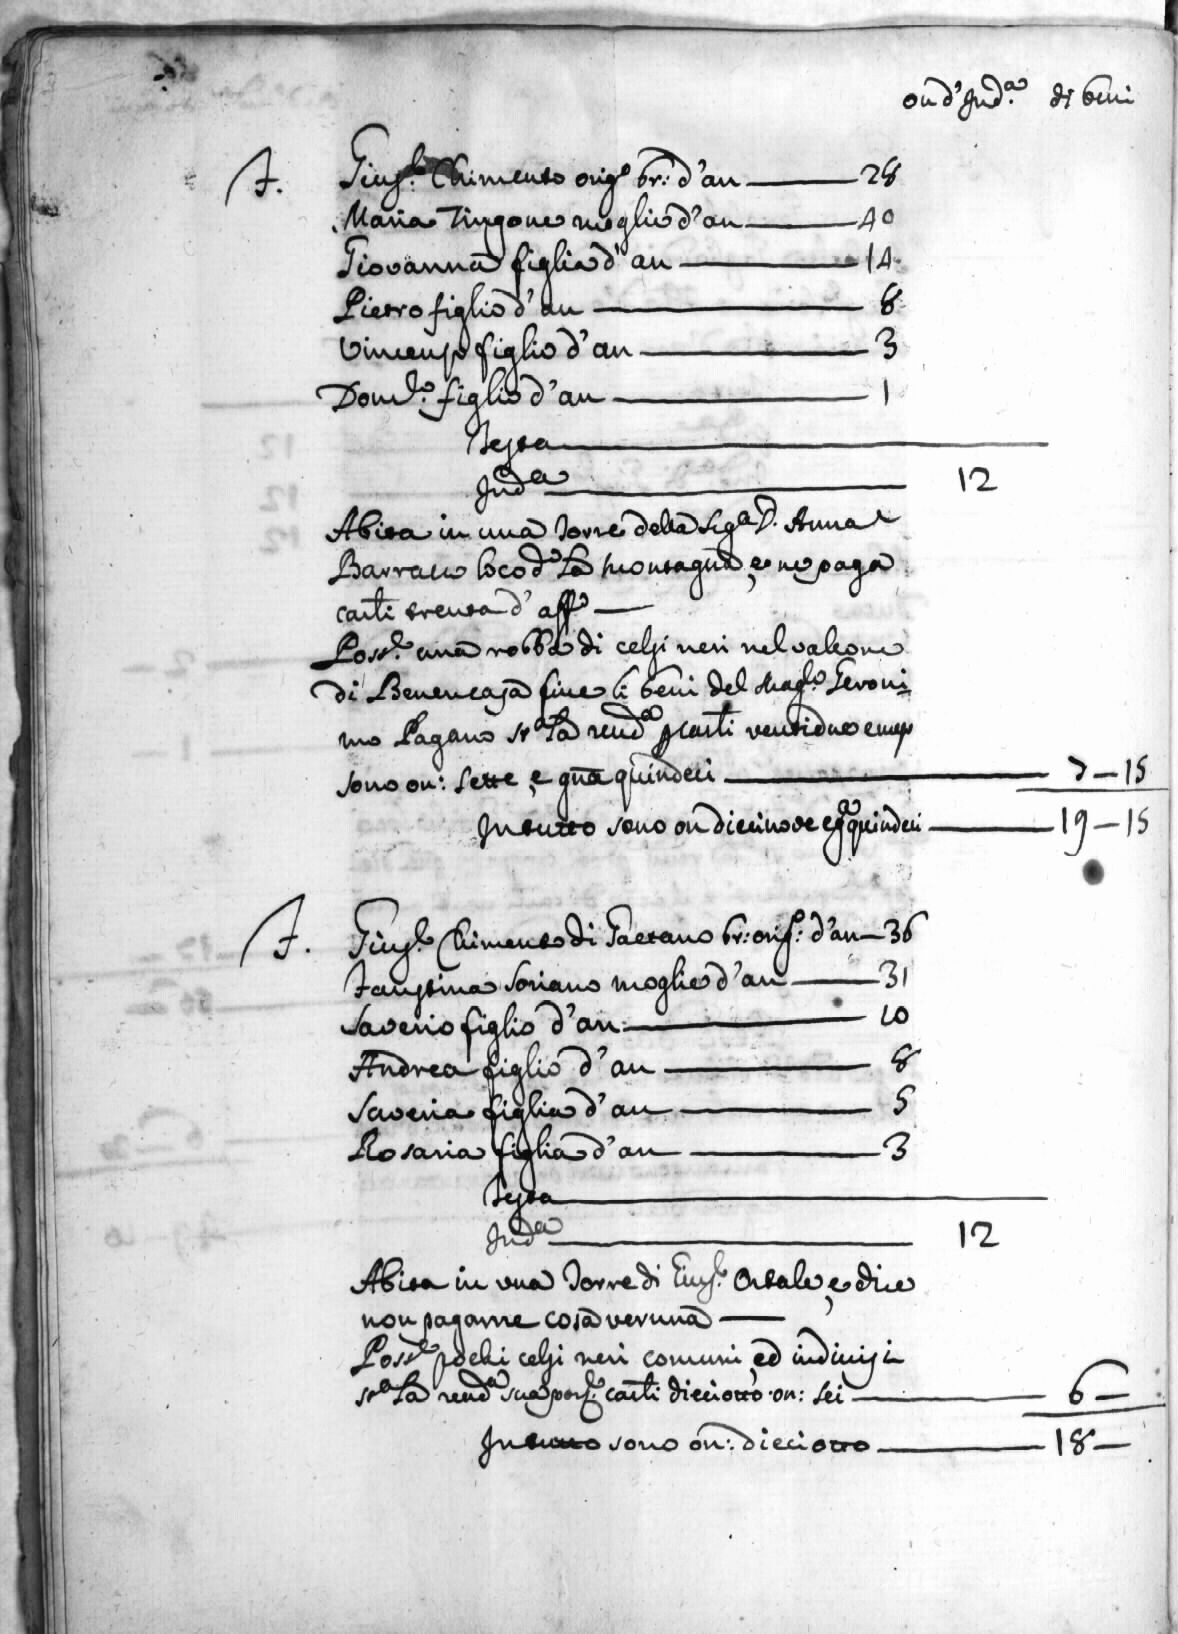 on: d'Ind.a di beni
F. Gius.e Chimento orig.e br: d'an 28
Maria Tingone moglie d'an 40
Giovanna figlia d'an 14
Pietro figlio d'an 8
Vincenzo figlio d'an 3
Dom.co figlio d'an 1
Testa
Ind.a 12
Abita in una Torre della Sig.a D. Anna
Barracco loco d.o La Montagna, e ne paga
carli trenta d'aff.o
Poss.e una robba di celsi neri nel valeone
di Benencasa fine li beni del Mag.co Geroni=
mo Pagano st.a La rend.a p carli ventidue e mezo
sono on: sette, e grna quindeci 7–15
In tutto sono on diecinove e gra quindeci 19–15
F. Gius.e Chimento di Gaetano br: orig.o: d'an 36
Faustina Soriano moglie d'an 31
Saverio figlio d'an: 10
Andrea figlio d'an 8
Saveria figlia d'an 5
Rosaria figlia d'an 3
Testa
Ind.a 12
Abita in una Torre di Gius.e Ortale, e dice
non pagarne cosa veruna
Poss.e pochi celsi neri comuni, ed indivisi
st.a La rend.a sua porz.e carli dieciotto on: sei 6–
In tutto sono on: dieciotto 18–